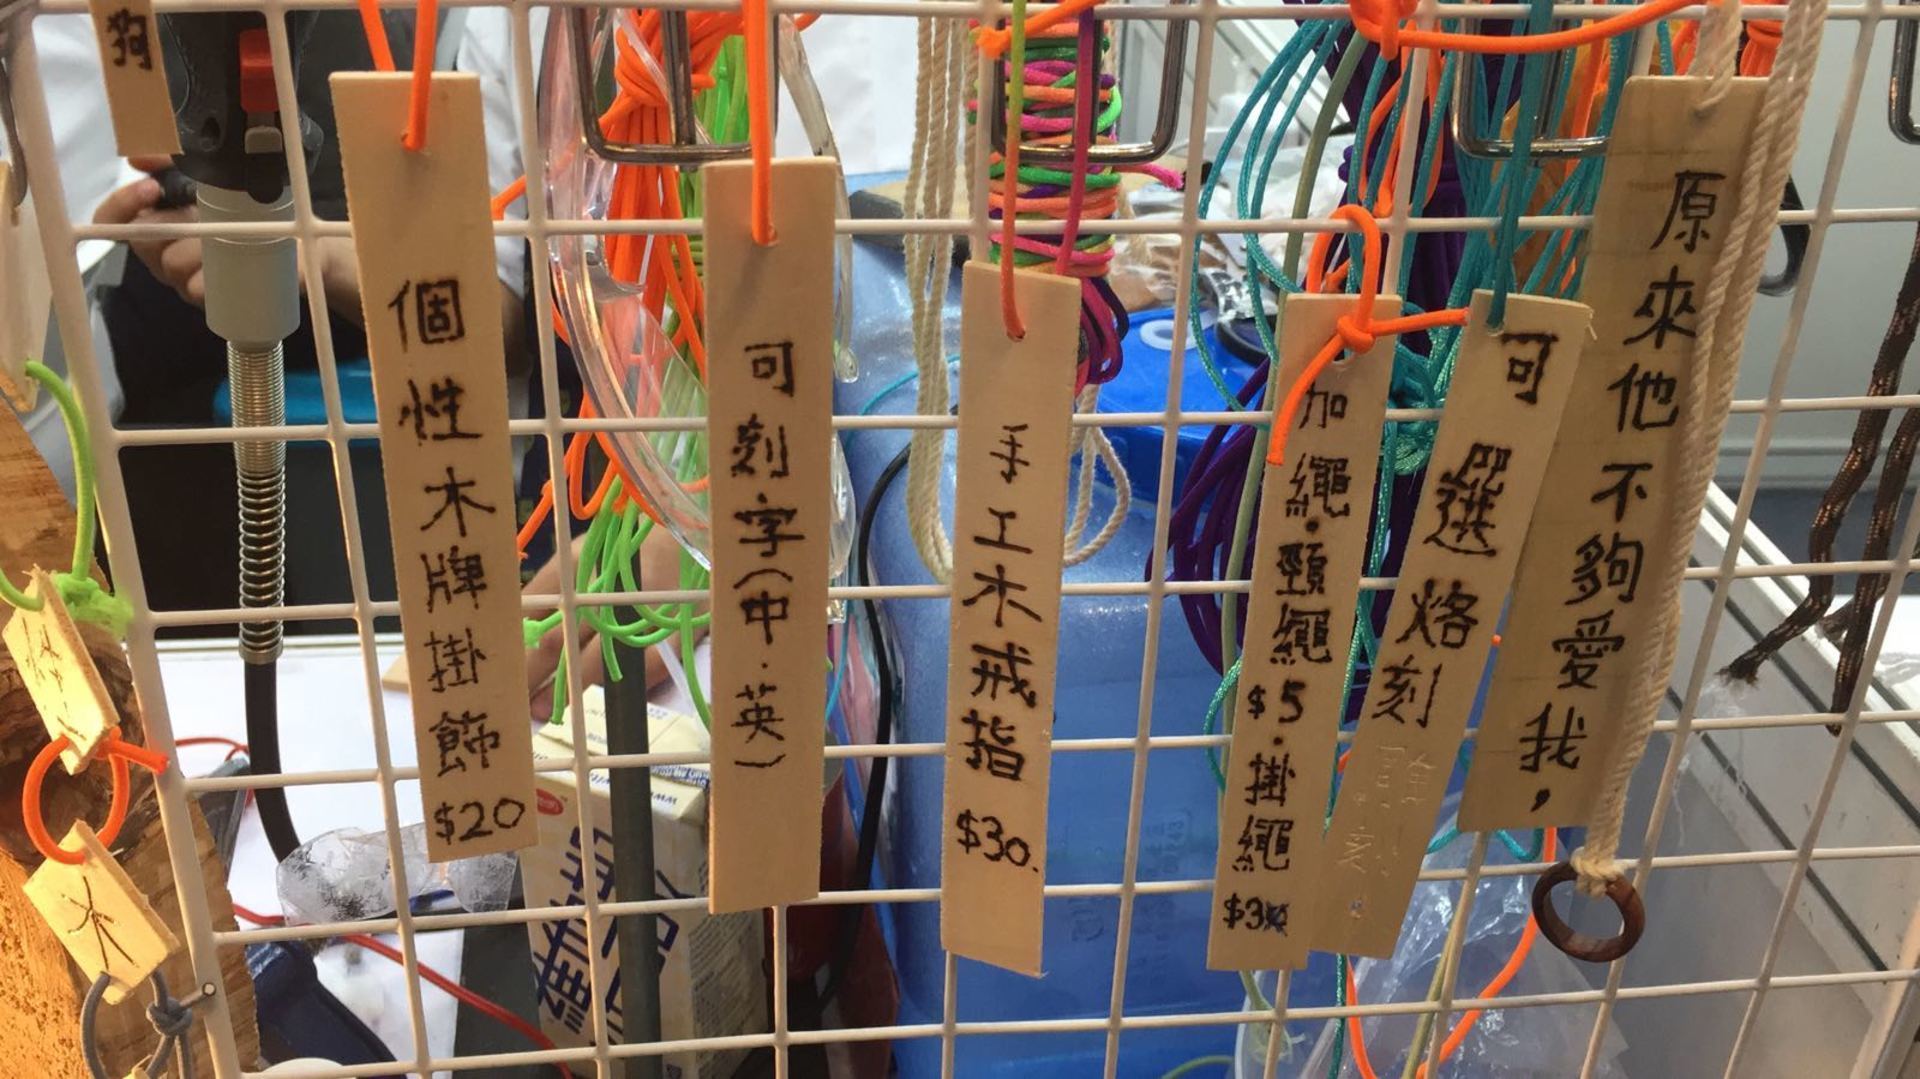 狗
個性木牌掛飾
$20
可刻字(中.英)
手工木戒指
$30.
加繩.頸繩$5.掛繩
$3
可選烙刻
原來他不夠愛我,
木
維他奶